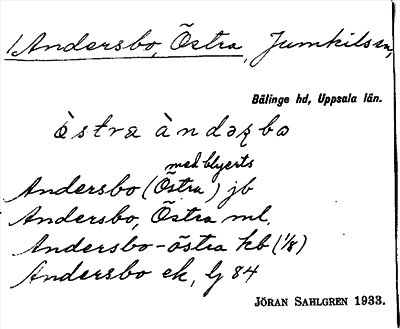 Andersbo, Östra, Jumkils sn,
Bälinge hd, Uppsala län.
östra àndəʂbo
med blyerts
Andersbo (Östra) jb
Andersbo, Östra ml.
Andersbo-östra kb (1/8)
Andersbo ek, lj 84
JÖRAN SAHLGREN 1933.